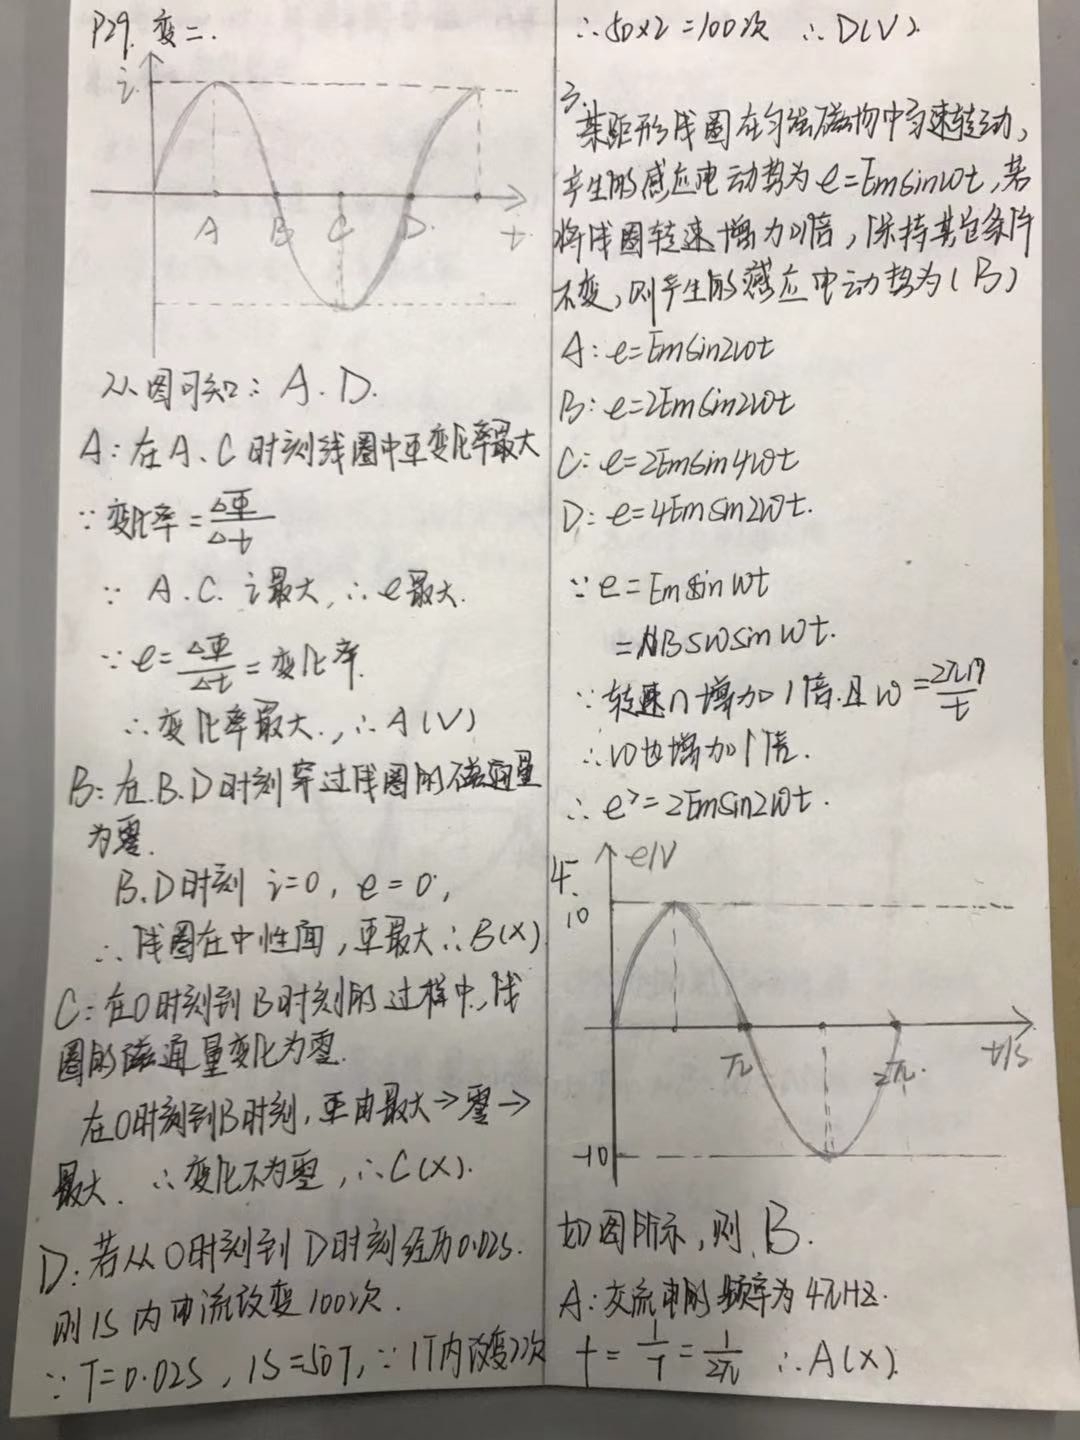 P29. 变二.
i
A B C D t
从图可知: A. D.
A: 在A、C时刻线圈中Φ变化率最大
∵ 变化率 = ΔΦ/Δt
∵ A.C. i最大, ∴ e最大.
∵ e = ΔΦ/Δt = 变化率.
∴ 变化率最大., ∴ A(√)
B: 在.B.D时刻穿过线圈的磁通量
为零.
B.D时刻 i=0, e=0,
∴ 线圈在中性面, Φ最大 ∴ B(×)
C: 在0时刻到B时刻的过程中, 线
圈的磁通量变化为零.
在0时刻到B时刻, Φ由最大→零→
最大. ∴ 变化不为零, ∴ C(×).
D: 若从0时刻到D时刻经历0.02s.
则1s内电流改变100次.
∵ T=0.02s, 1s=50T, ∵ 1T内改变2次
∴ 50×2=100次 ∴ D(√).
3.
某距形线圈在匀强磁场中匀速转动,
产生的感应电动势为e=Emsinωt, 若
将线圈转速增加1倍, 保持其它条件
不变, 则产生的感应电动势为(B)
A: e=Emsin2ωt
B: e=2Emsin2ωt
C: e=2Emsin4ωt
D: e=4Emsin2ωt.
∵ e=Emsinωt
=NBSωsinωt.
∵ 转速n增加1倍.且ω=2πn/t
∴ ω也增加1倍.
∴ e'=2Emsin2ωt.
4.
e/V
10
π 2π. t/s
-10
如图所示, 则 B.
A: 交流电的频率为4πHz.
f = 1/T = 1/2π ∴ A(×).